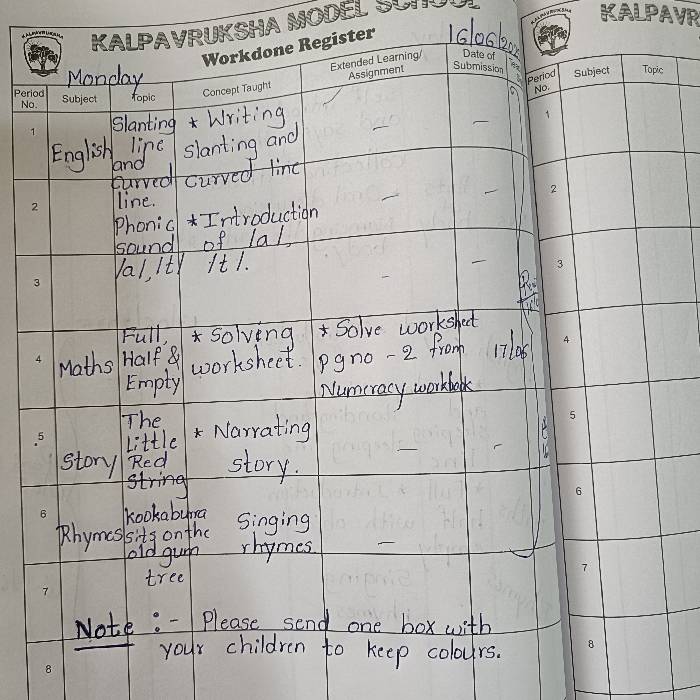 KALPAVRUKSHA MODEL SCHOOL
Workdone Register
Monday
Period No. Subject Topic Concept Taught Extended Learning/ Assignment Date of Submission
1 English Slanting line and curved line. * Writing slanting and curved line — —
2 Phonic sound /a/, /t/ * Introduction of /a/, /t/. — —
3 - —
4 Maths Full, Half & Empty * Solving worksheet. * Solve worksheet pgno - 2 from Numeracy workbook 17/06
5 Story The Little Red String * Narrating story. — -
6 Rhymes Kookaburra sits on the old gum tree Singing rhymes —
7
Note :- Please send one box with
your children to keep colours.
8
KALPAVR
Period No. Subject Topic
1
2
3
4
5
6
7
8